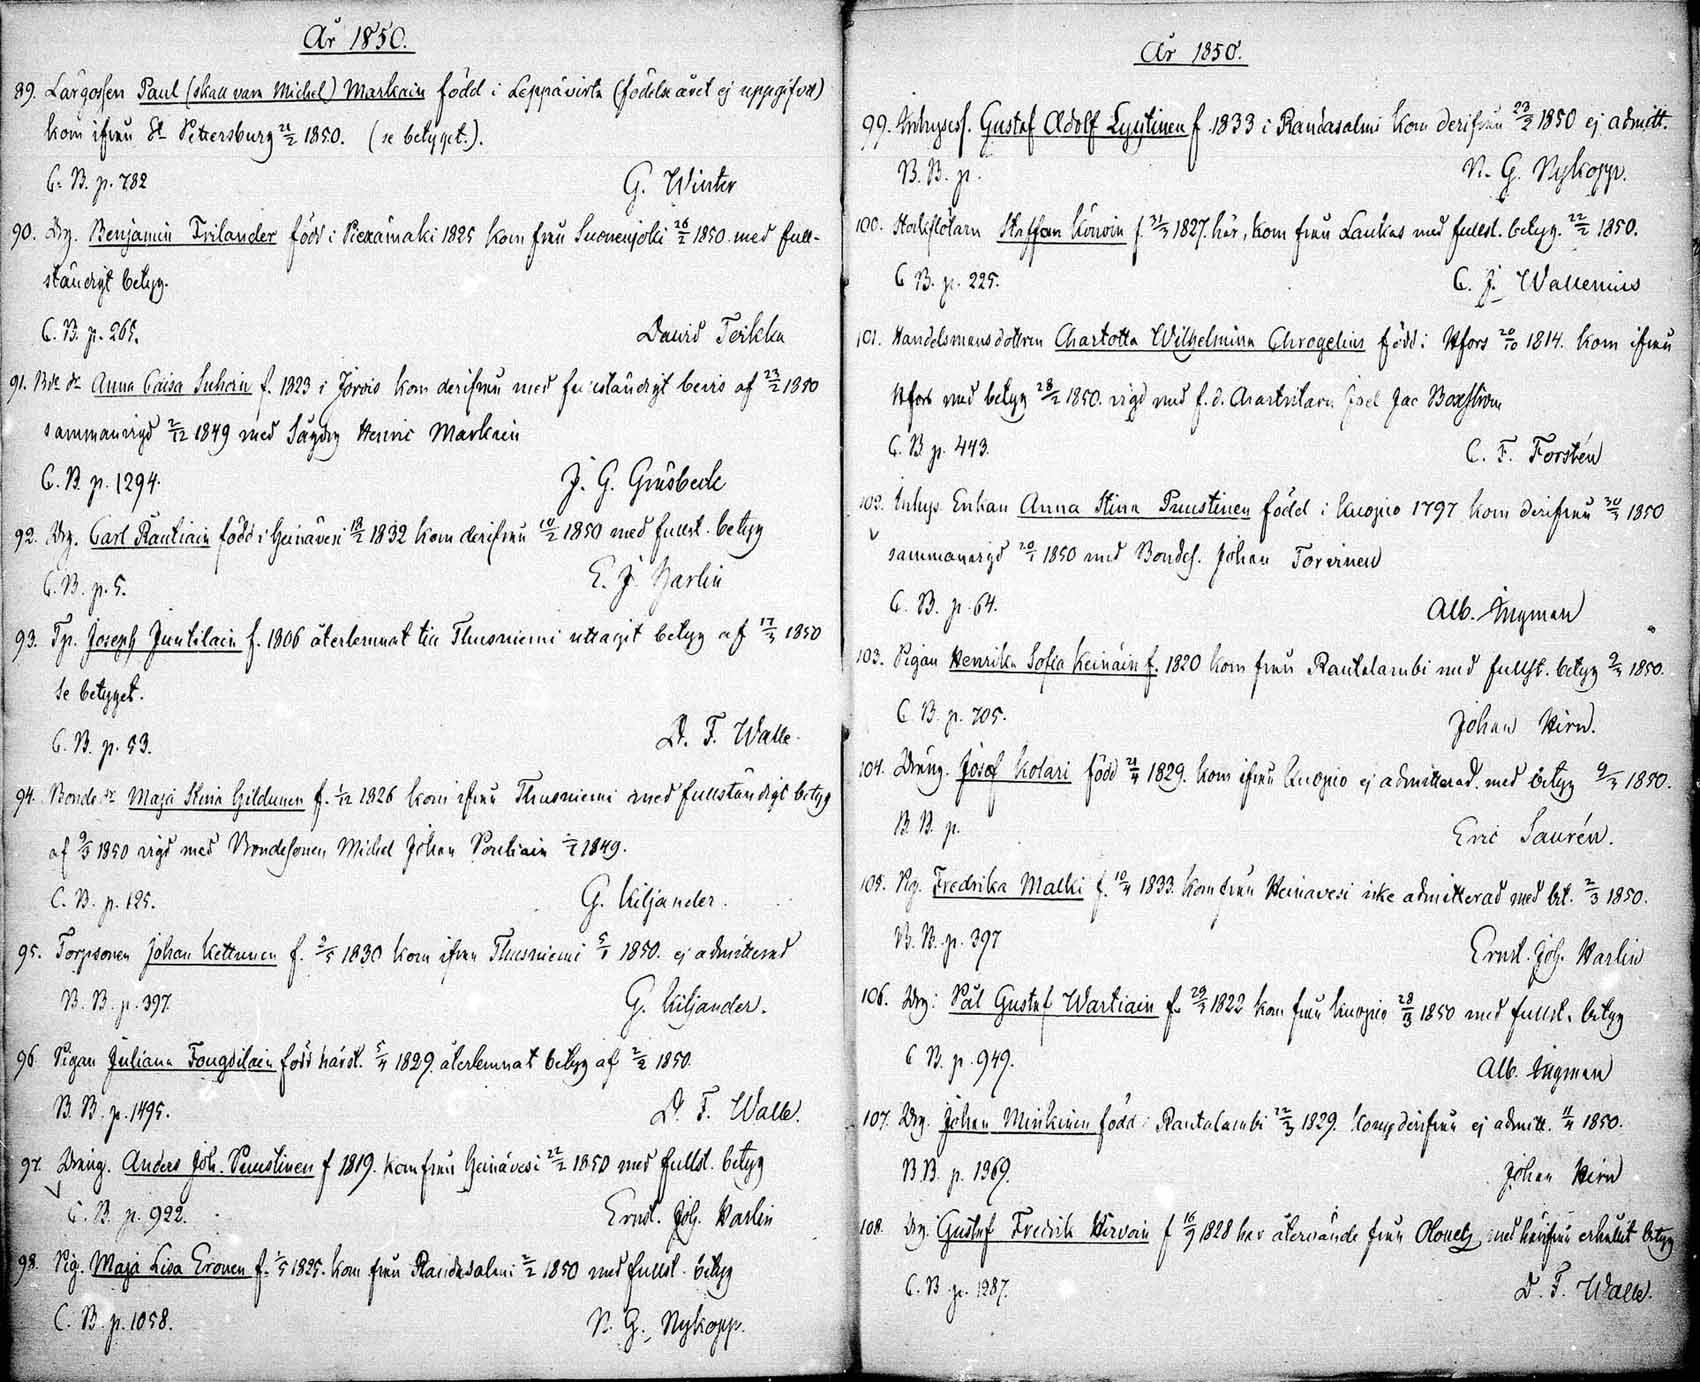 År 1850.
89. Lärgossen Paul (skall vara Michel) Markain född i Leppävirta (födelseåret ej uppgifvet)
kom ifrån St Petersburg 21/2 1850. (se betyget.).
C. B. p. 782
G. Winter
90. Drg. Benjamin Frilander född i Piexämäki 1825 kom från Suonenjoki 26/2 1850 med full-
ständigt betyg.
C. B. p. 265.
David Terklen
91. Bde dr Anna Caisa Suhoin f. 1823 i Jorois kom derifrån med fullständigt bevis af 23/2 1850
sammanvigd 2/12 1849 med Sågdrg Henric Markain
C. B. p. 1294.
J. G. Gråsbeck
92. Drg. Carl Rautiain född i Heinävesi 1832 kom derifrån 10/2 1850 med fullst. betyg
C. B. p. 5.
E. J. Harlin
93. Tp. Joseph Juntilain f. 1806 återlemnat till Thusniemi uttagit betyg af 17/3 1850
se betyget.
C. B. p. 53.
D. F. Walle.
94. Bonde dr Maja Stina Hildunen f. 1/12 1826 kom ifrån Thusniemi med fullständigt betyg
af 9/3 1850 vigd med Bondesonen Michel Johan 1849.
C. B. p. 125.
G. Kiljander.
95. Torpsonen Johan Kettunen f. 2/5 1830 kom ifrån Thusniemi 1850. ej admitterad
B. B. p. 397
G. Kiljander.
96. Pigan Juliana Tougdilain född härst. 5/4 1829. återlemnat betyg af 2/2 1850.
B. B. p. 1495.
D. F. Walle.
97. Dräng. Anders Joh. Puustinen f 1819. kom från Heinävesi 22/2 1850 med fullst. betyg
C. B. p. 922.
Ernst. Joh. Harlin
98. Pig. Maja Lisa Eronen f. 1/5 1825. kom från Randasalmi 2/2 1850 med fullst. betyg
C. B. p. 1058.
N. G. Nykopp.
År 1850.
99. Inhyses. Gustaf Adolf Lyytinen f. 1833 i Randasalmi kom derifrån 23/2 1850 ej admitt.
B. B. p.
N. G. Nykopp.
100. Staffan Könöin f. 1827. här, kom från Laukas med fullst. betyg. 22/2 1850.
C B. p. 225.
C. J. Wallenius
101. Handelsmansdottren Charlotta Wilhelmina Chrogelius född i Hfors 20/10 1814. kom ifrån
Hfors med betyg 28/2 1850. vigd med f. d. Joel Jac Boxström
C. B p. 443.
C. F. Forstén
102. Inhys. Enkan Anna Stina Puustinen född i Kuopio 1797 kom derifrån 30/3 1850
sammanvigd 20/1 1850 med Bondes. Johan Torvinen
C. B. p. 64.
Alb. Ingman
103. Pigan Henrika Sofia Keinäin f. 1820 kom från Rautalambi med fullst. betyg 9/3 1850.
C B. p. 705.
Johan Hirn.
104. Dräng. Josef Kolari född 21/4 1829. kom ifrån Kuopio ej admitterad. med betyg 9/3 1850.
B. B. p.
Eric Saurén.
105. Pig. Fredrika Malki f. 10/4 1833. kom från Heinavesi icke admitterad med bet. 2/3 1850.
B. B. p. 397
Ernst. Joh. Harlin
106. Drg: Pål Gustaf Wartiain f. 29/3 1822 kom från Kuopio 28/3 1850 med fullst. betyg
C B. p. 949.
Alb. Ingman
107. Drg. Johan Minkinen född i Rautalambi 22/3 1829. kom derifrån ej admitt. 11/4 1850.
B B. p. 1369.
Johan Hirn
108. Drg. Gustaf Fredrik Hirvoin f 16/9 1828 har återvände från Olonetz, med härifrån erhållit betyg
C. B p. 1287.
D. F. Walle.